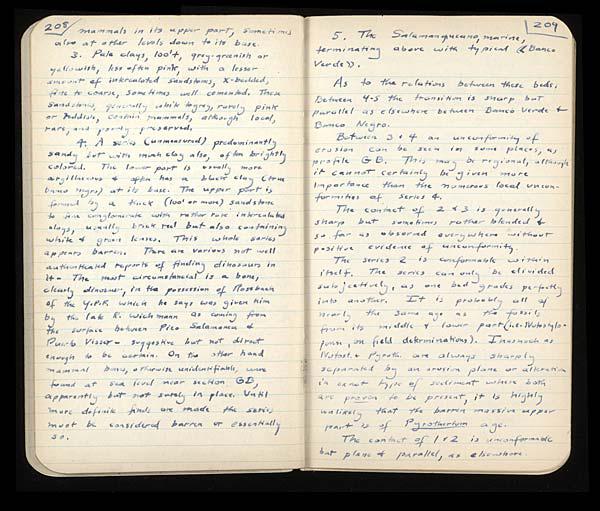 208
mammals in its upper part, sometimes
also at other levels down to its base.
3. Pale clays, 100'±, gray-greenish or
yellowish, less often pink, with a lesser
amount of intercalated sandstones, x-bedded,
fine to coarse, sometimes well cemented. These
sandstones, generally white to grey, rarely pink
or reddish, contain mammals, although local,
rare, and poorly preserved.
4. A series (unmeasured) predominantly
sandy but with much clay also, often brightly
colored. The lower part is usually more
argillaceous & often has a black clay (true
banco negro) at its base. The upper part is
formed by a thick (100' or more) sandstone
to fine conglomerate with rather rare intercalated
clays, usually brick red but also containing
white & green lenses. This whole series
appears barren. There are various not well
authenticated reports of finding dinosaurs in
it. The most circumstancial is a bone,
clearly dinosaur, in the possession of
of the Y.P.F. which he says was given him
by the late R. Wichmann as coming from
the surface between Pico Salamanca &
Puerto Visser - suggestive but not direct
enough to be certain. On the other hand
mammal bones, otherwise unidentifiable, were
found at sea level near section GD,
apparently but not surely in place. Until
more definite finds are made the series
must be considered barren or essentially
so.
209
5. The Salamanqueano, marine,
terminating above with typical «Banco
Verde».
As to the relations between these beds:
Between 4-5 the transition is sharp but
parallel as elsewhere between Banco Verde &
Banco Negro.
Between 3 & 4 an unconformity of
erosion can be seen in some places, as
profile GB. This may be regional, although
it cannot certainly be given more
importance than the numerous local uncon-
formities of series 4.
The contact of 2 & 3 is generally
sharp but sometimes rather blended &
so far as observed everywhere without
positive evidence of unconformity.
The series 2 is conformable within
itself. The series can only be divided
subjectively, as one bed grades perfectly
into another. It is probably all of
nearly the same age as the fossils
from its middle & lower part (i.e. Notostylo-
pense, on field determinations). Inasmuch as
Notost. & Pyroth. are always sharply
separated by an erosion plane or alteration
in exact type of sediment where both
are proven to be present, it is highly
unlikely that the barren massive upper
part is of Pyrotherium age.
The contact of 1 & 2 is unconformable
but plane & parallel, as elsewhere.